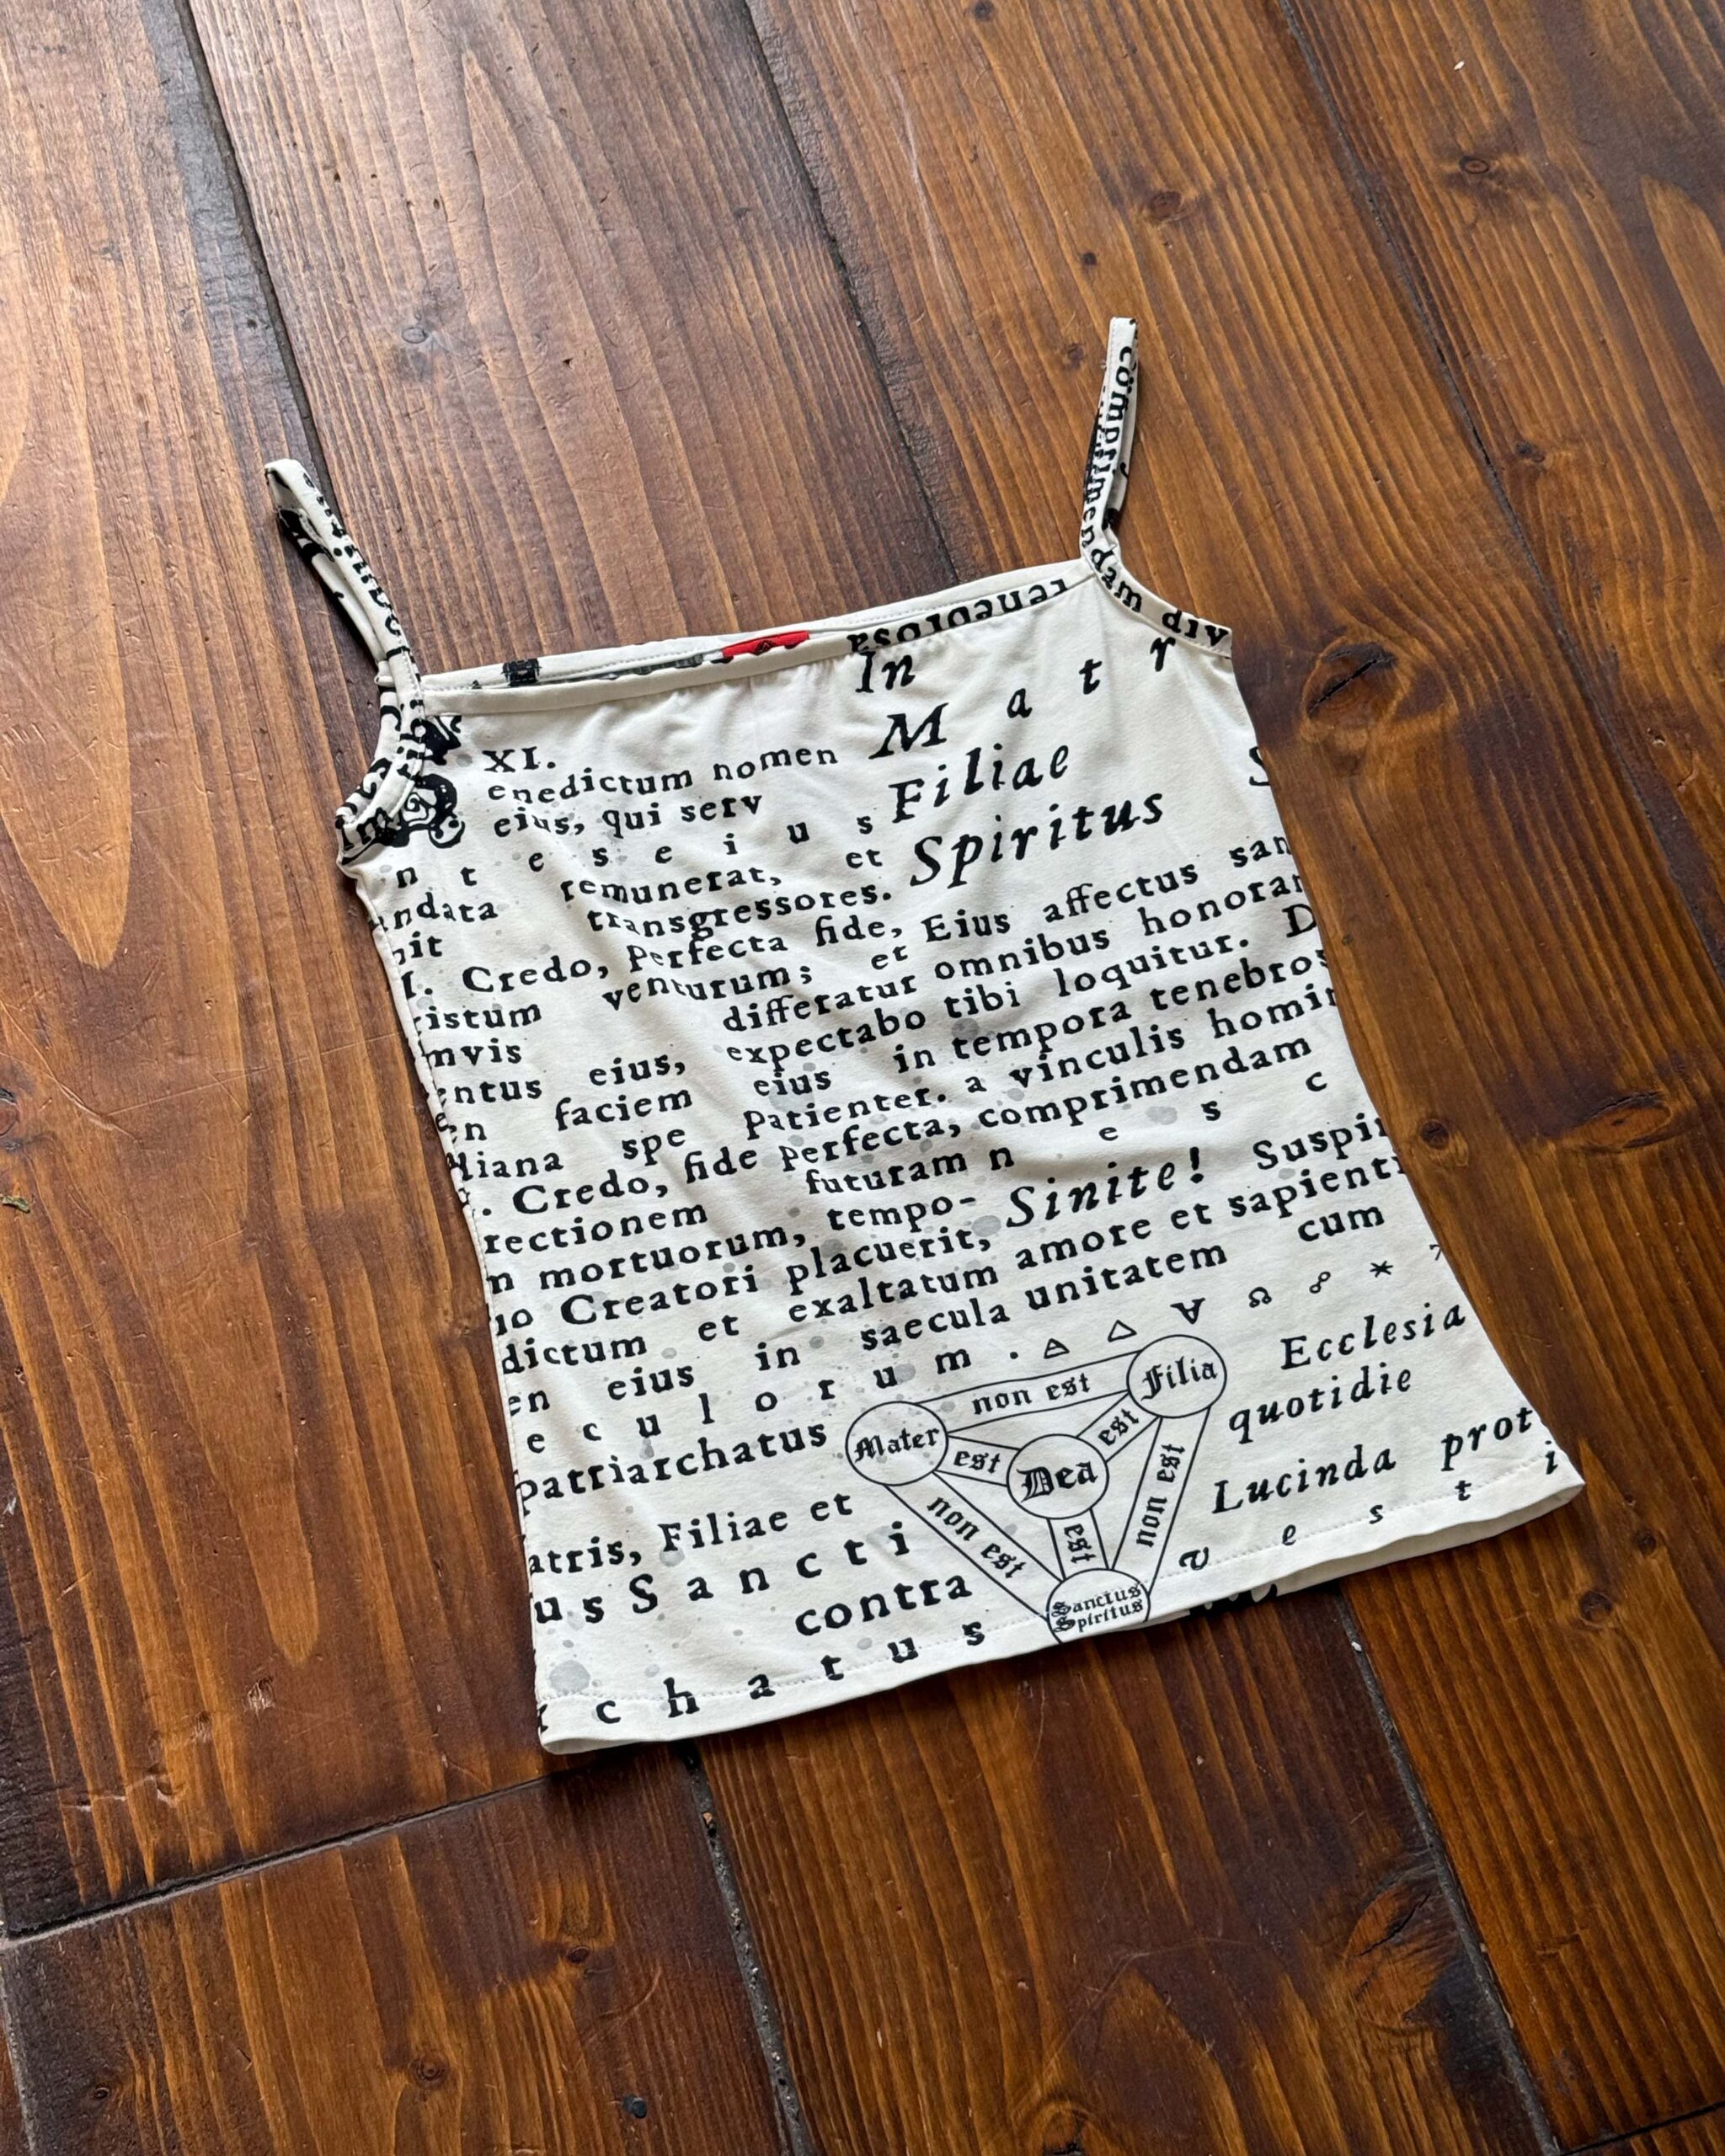 comprimendam div
tenebrosa
In
M a t r
Filiae
Spiritus
XI.
enedictum nomen
eius, qui serv
n t e s e i u s
ndata remunerat, et
nit transgressores.
I. Credo, Perfecta fide, Eius affectus san
istum venturum; et
mvis differatur omnibus honorar
entus eius, expectabo tibi loquitur. D
en faciem eius in tempora tenebros
liana spe Patienter. a vinculis homin
. Credo, fide perfecta, comprimendam
rectionem futuram n e s c
n mortuorum, tempo- Sinite! Suspi
io Creatori placuerit,
dictum et exaltatum amore et sapienti
en eius in saecula unitatem cum
e c u l o r u m .
patriarchatus
atris, Filiae et
us Sancti
contra
r c h a t u s
Mater non est Filia
est est
Dea
non est est non est
Sanctus
Spiritus
Ecclesia
quotidie
Lucinda prot
v e s t i